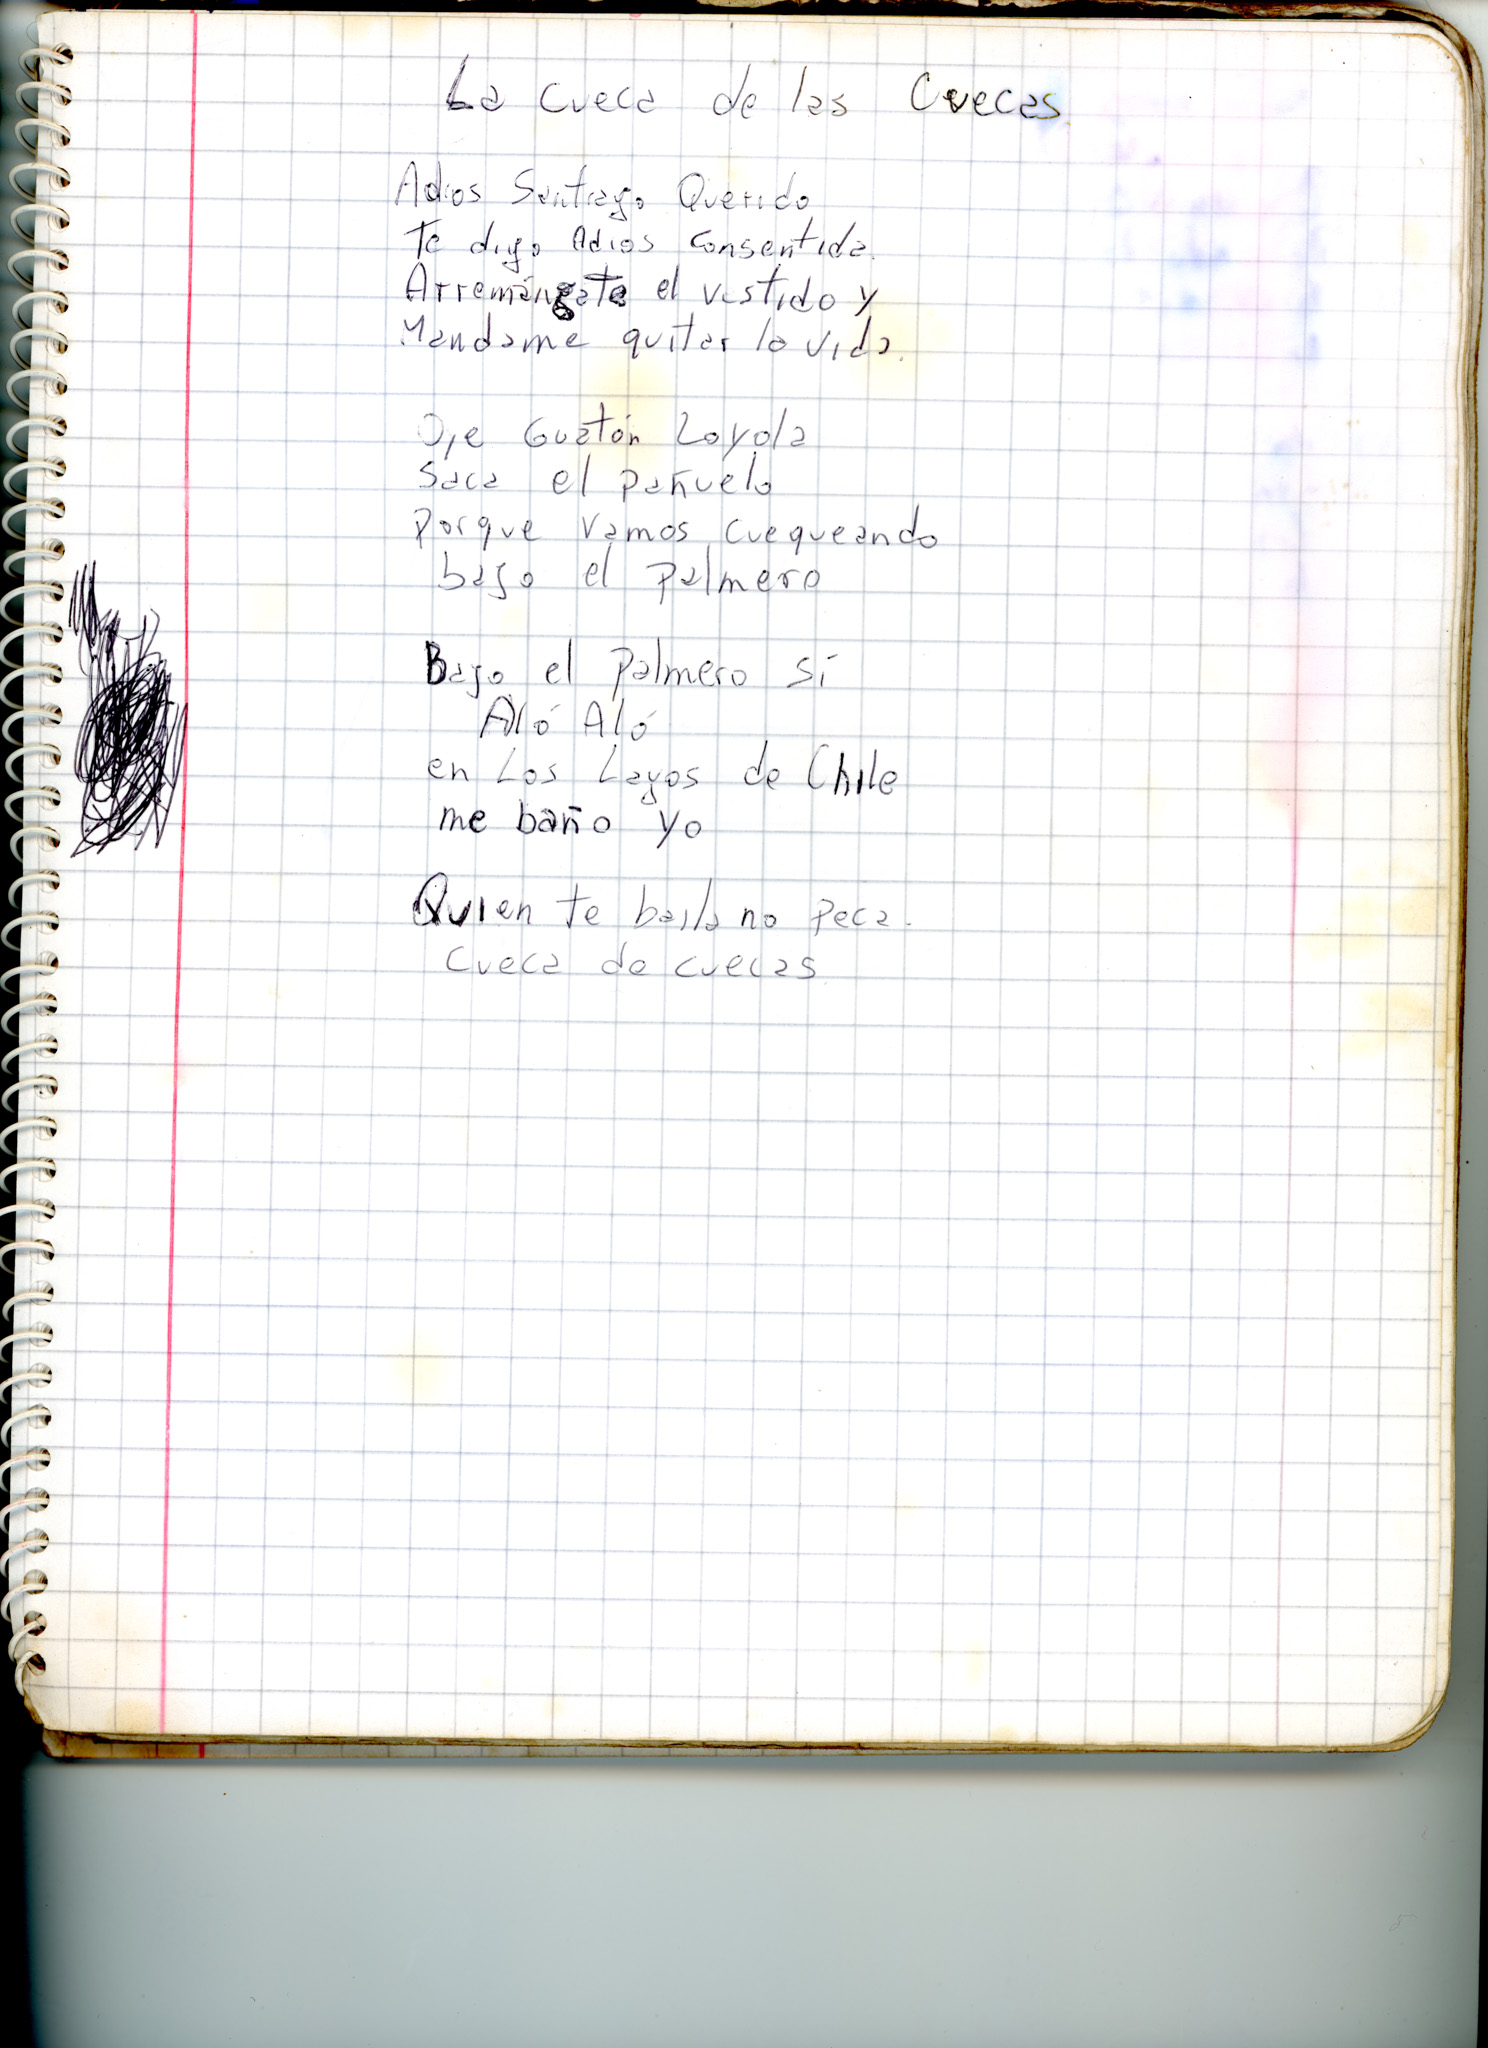 La Cueca de las Cuecas
Adios Santiago Querido
Te digo Adios Consentida.
Arremángate el vestido y
Mandame quitar la vida.
Oye Guatón Loyola
Saca el pañuelo
Porque vamos cuequeando
bajo el palmero
Bajo el palmero sí
Aló Aló
en Los Lagos de Chile
me baño yo
Quien te baila no peca.
Cueca de cuecas